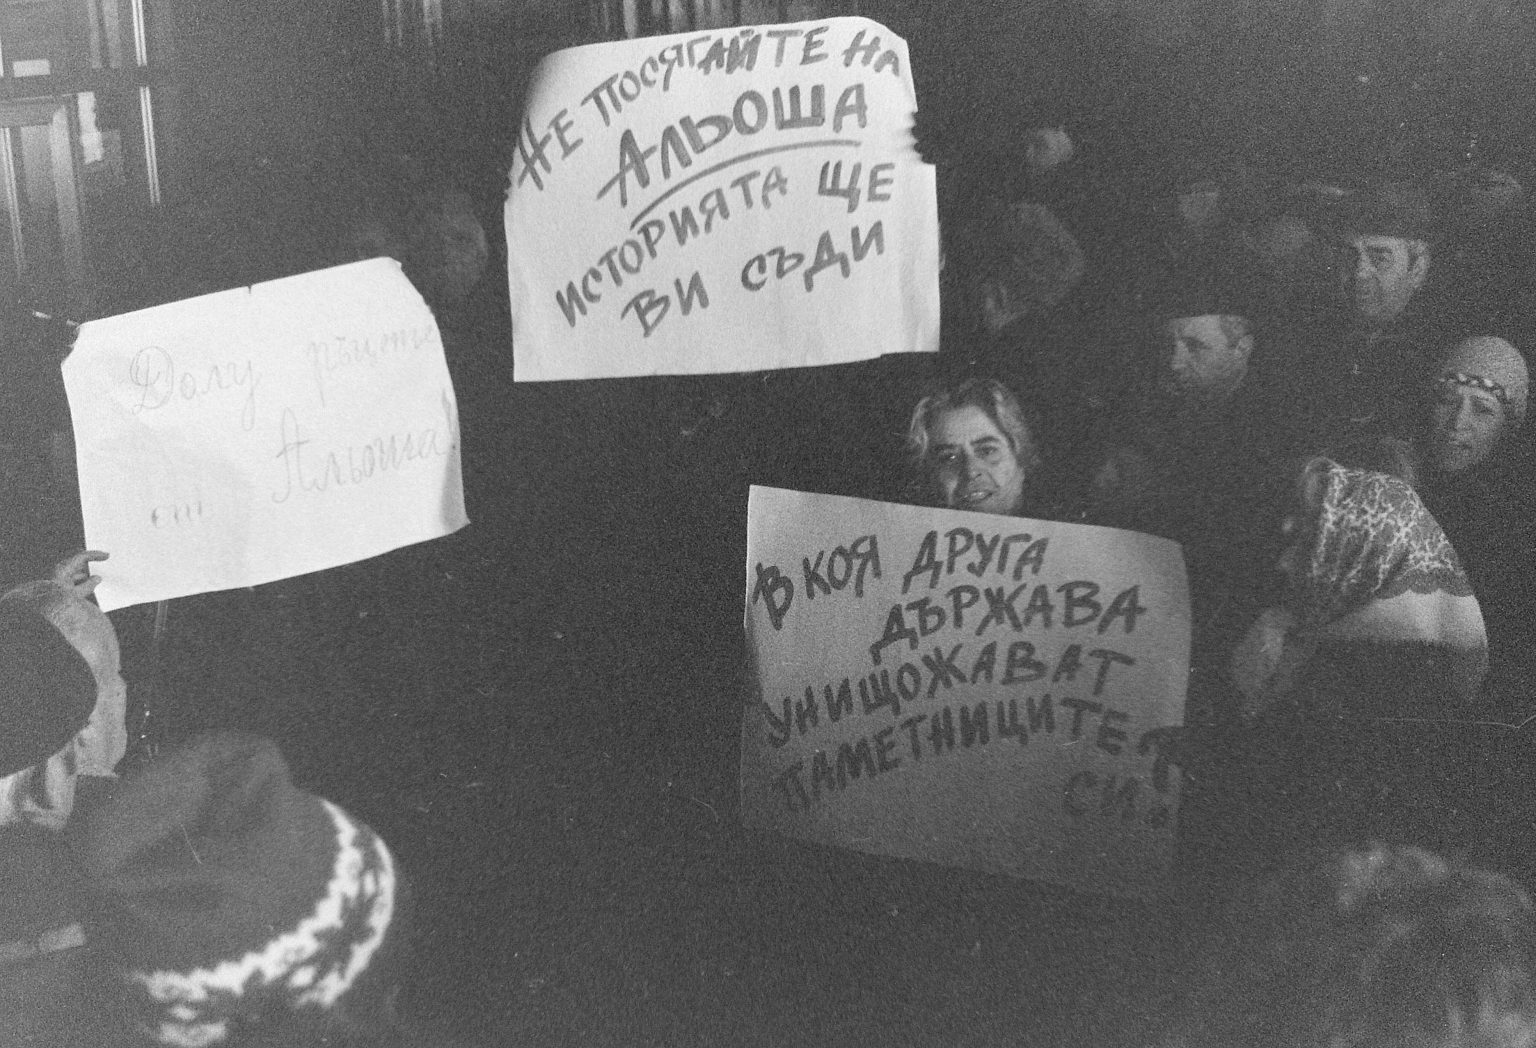 Долу ръцете
от Альоша!
НЕ ПОСЯГАЙТЕ НА
АЛЬОША
ИСТОРИЯТА ЩЕ
ВИ СЪДИ
В КОЯ ДРУГА
ДЪРЖАВА
УНИЩОЖАВАТ
ПАМЕТНИЦИТЕ
СИ?